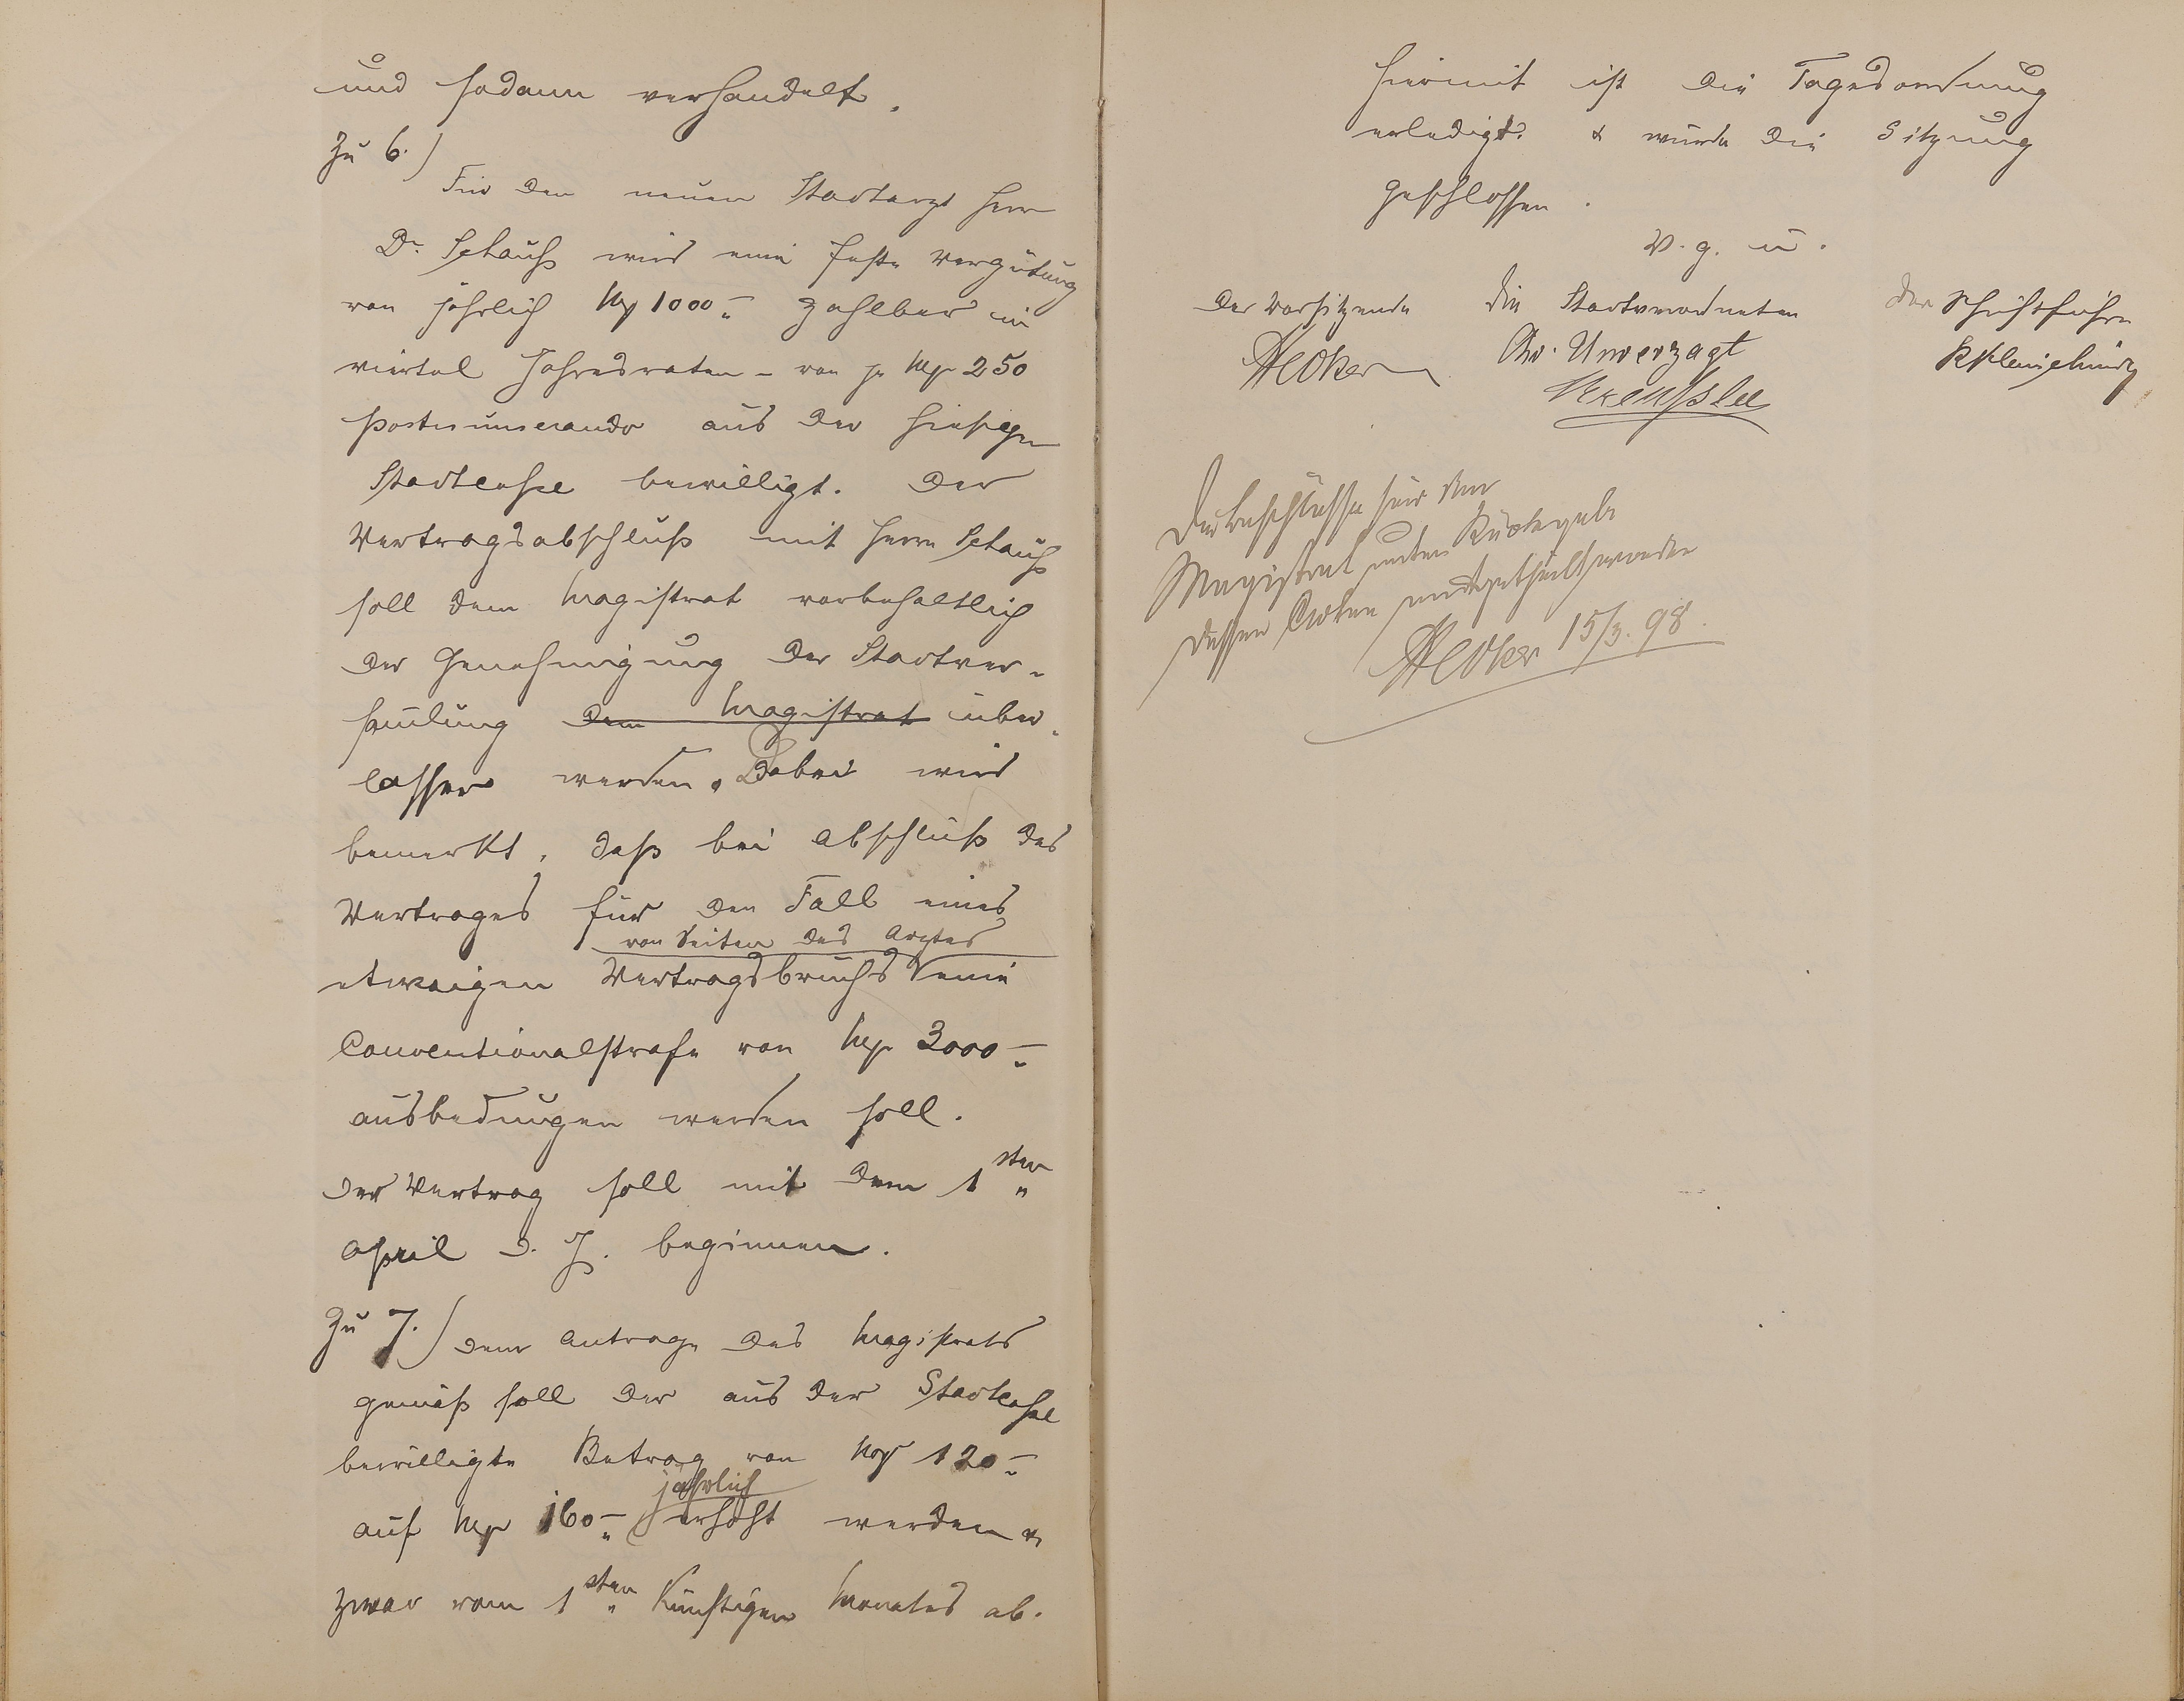 und sodann verhandelt.
Zu 6.)
Für den neuen Stadtarzt Herr
Dr. Schauß wird eine feste Vergütung
von jährlich Mk 1000.- zahlbar in
viertel Jahresraten - von je Mk 250
postnumerando aus der hiesigen
Stadtcasse bewilligt. Der
Vertragsabschluß mit Herrn Schauß
soll dem Magistrat vorbehaltlich
der Genehmigung der Stadtver-
sam̄lung dem Magistrat über-
lassen werden. Dabei wird
bemerkt, daß bei Abschluß des
Vertrages für den Fall eines
von Seiten des Arztes
etwaigen Vertragsbruchs eine
Conventionalstrafe von Mk 3000.-
ausbedungen werden soll.
Der Vertrag soll mit dem 1sten
April d. J. beginnen.
Zu 7.) Dem Antrage des Magistrats
gemäß soll der aus der Stadtcasse
bewilligte Betrag von Mk 120.-
jährlich
auf Mk 160.- erhöht werden u.
zwar vom 1sten künftigen Monates ab.
Hiermit ist die Tagesordnung
erledigt. & wurde die Sitzung
geschlossen.
V. g. u.
Der Vorsitzende Die Stadtverordneten Der Schriftführer
Chr. Unverzagt
Die Beschlüsse sind dem
Magistrat unter Rückgabe
dessen Akten mitgetheilt worden
15/3. 98.